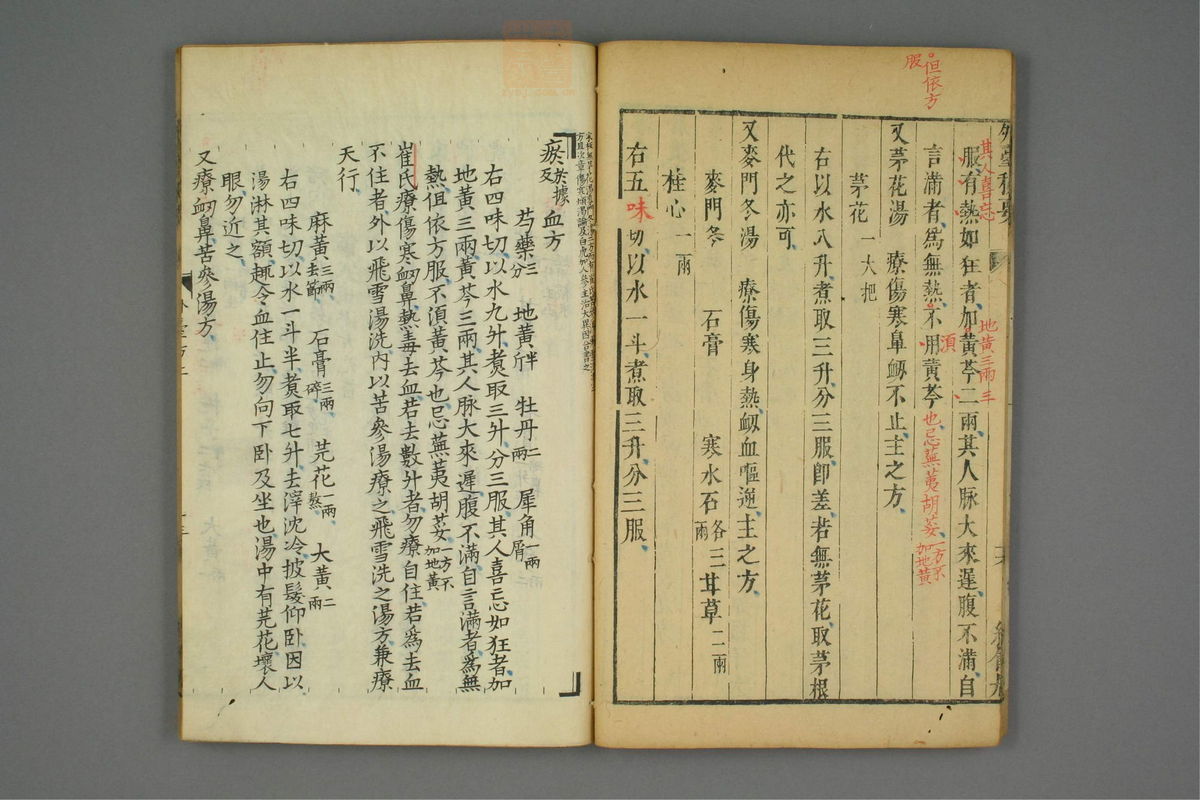 但依方
服
外臺秘要
其人喜忘
服有熱如狂者加黃芩二兩其人脉大來遲腹不滿自
地黃三兩
三
言滿者為無熱不用黃芩
須
也忌蕪荑胡荽一方不加地黃
又茅花湯 療傷寒鼻衂不止主之方
茅花一大把
右以水八升煮取三升分三服即差若無茅花取茅根
代之亦可
又麥門冬湯 療傷寒身熱衂血嘔逆主之方
麥門冬 石膏 寒水石各三兩 甘草二兩
桂心一兩
右五味切以水一斗煮取三升分三服
瘀及血方
芍藥三分 地黃半斤 牡丹二兩 犀角一兩屑
右四味切以水九升煑取三升分三服其人喜忘如狂者加
地黃三兩黃芩三兩其人脉大來遲腹不滿自言滿者為無
熱但依方服不須黃芩也忌蕪荑胡荽一方不加地黃
崔氏療傷寒衂鼻熱毒去血若去數升者勿療自住若為去血
不住者外以飛雪湯洗內以苦參湯療之飛雪洗之湯方兼療
天行
麻黃三兩去節 石膏三兩碎 芫花一兩熬 大黃二兩
右四味切以水一斗半煑取七升去滓沈冷披髮仰卧因以
湯淋其額趣令血住止勿向下卧及坐也湯中有芫花壞人
眼勿近之
又療衂鼻苦參湯方